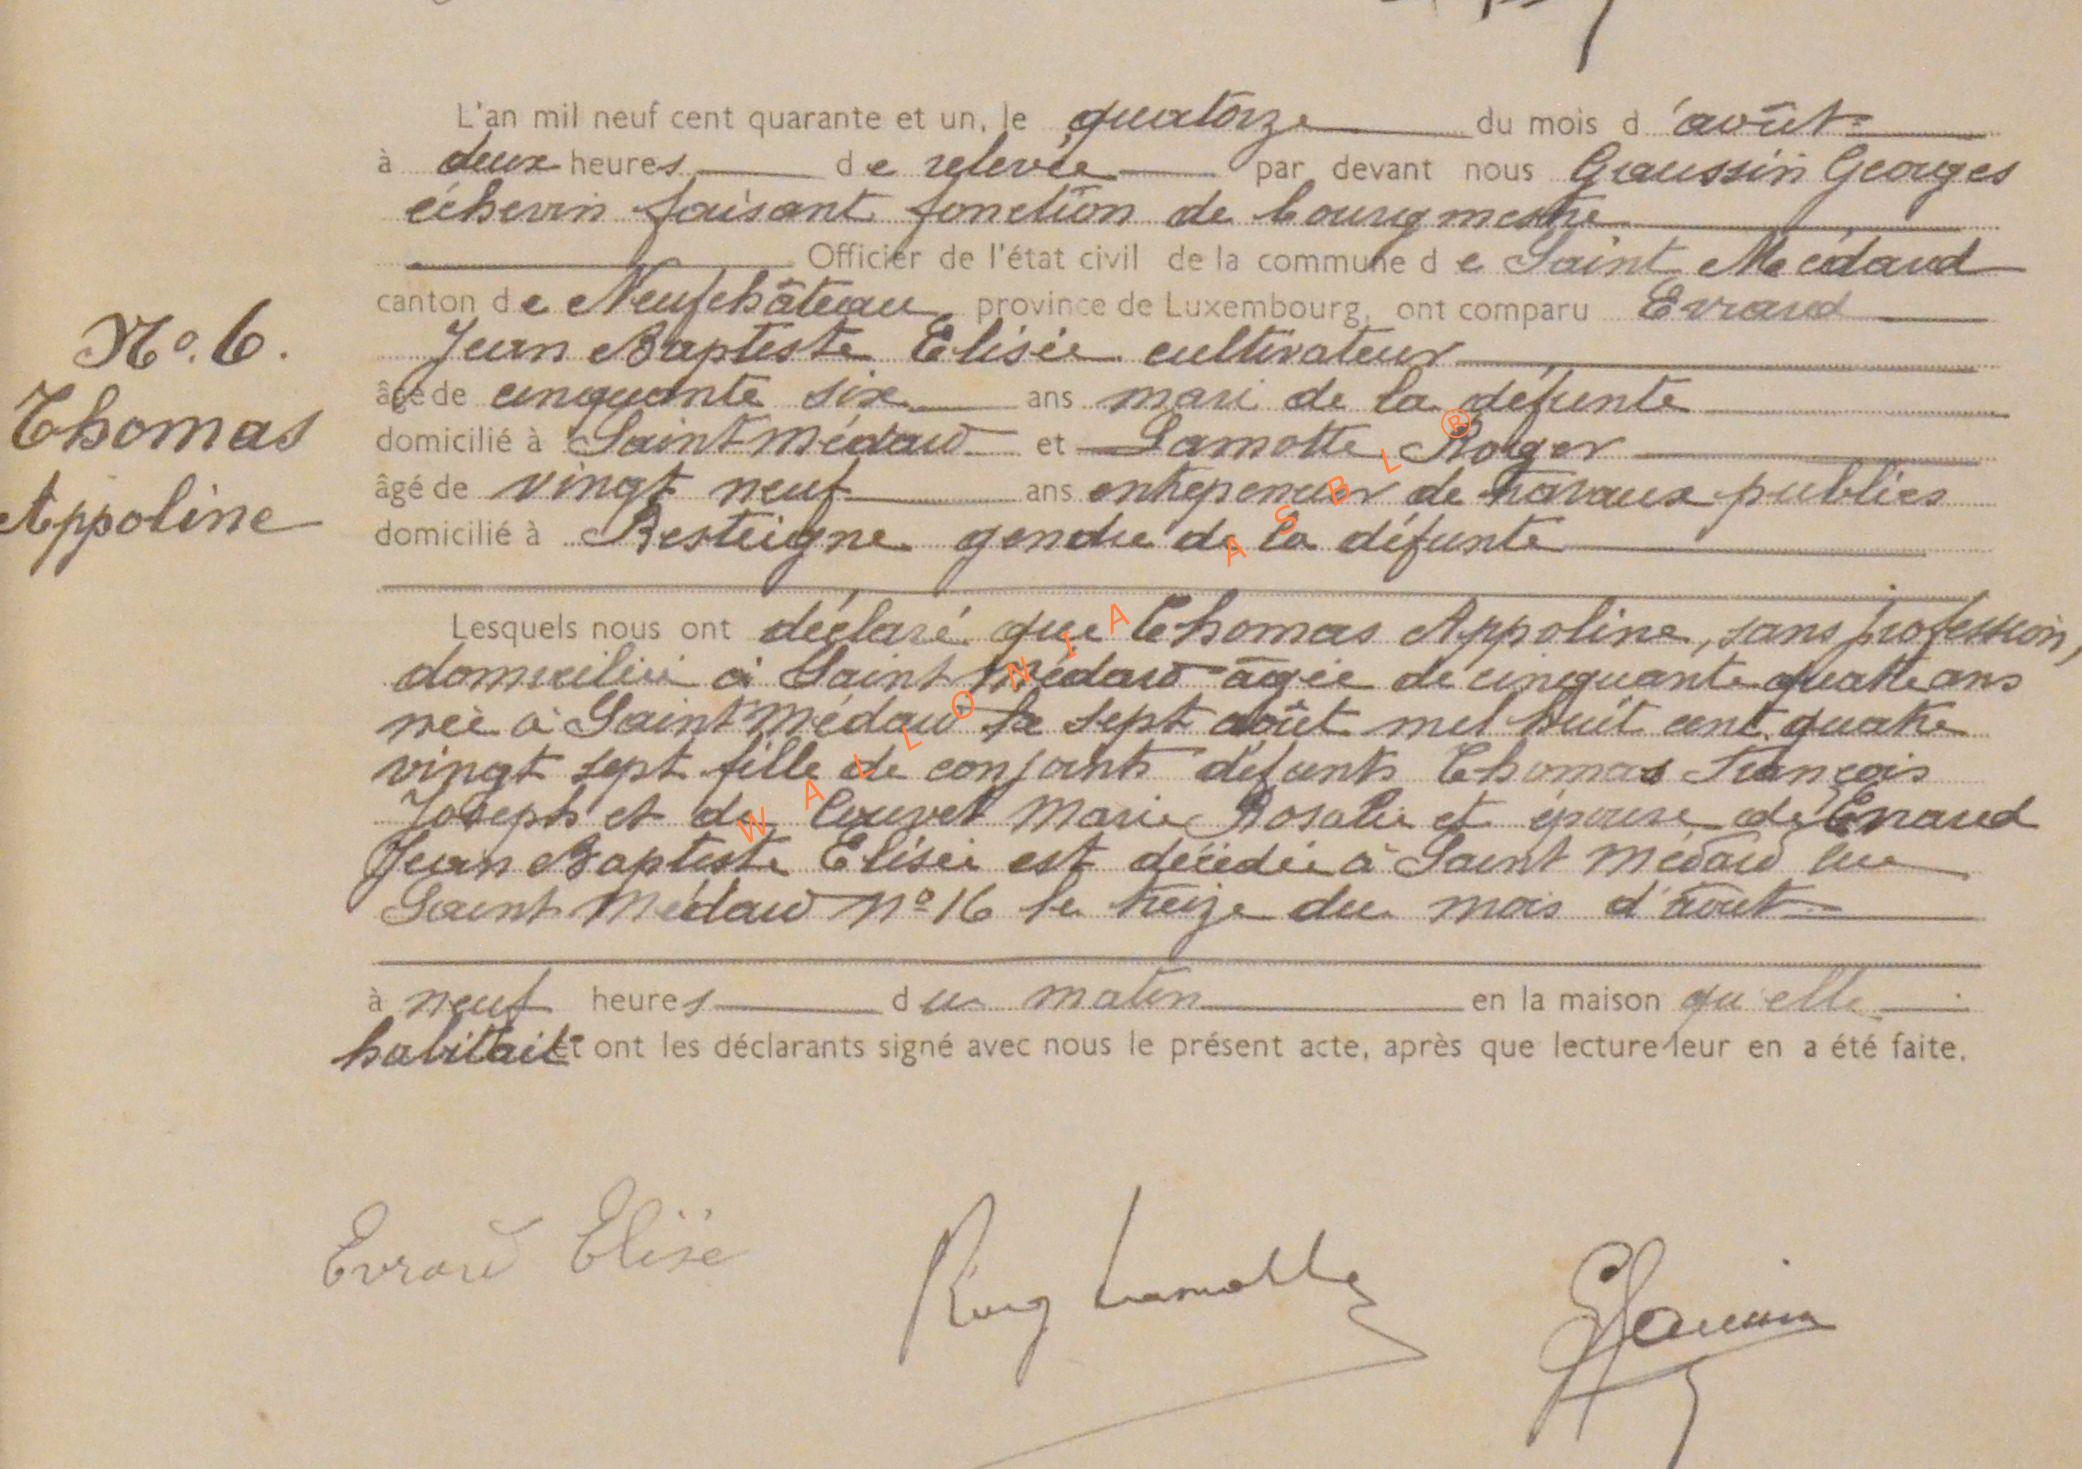 L'an mil neuf cent quarante et un, le quatorze du mois d'août
à deux heures de relevée par devant nous Graussin Georges
échevin faisant fonction de bourgmestre
Officier de l'état civil de la commune de Saint Médard
canton de Neufchâteau province de Luxembourg, ont comparu Evrard
Jean Baptiste Elisée cultivateur
No. 6.
âgé de cinquante six ans mari de la défunte
Thomas
domicilié à Saint Médard et Lamotte Roger
âgé de vingt neuf ans entrepeneur de travaux publics
Appoline
domicilié à Resteigne gendre de la défunte
Lesquels nous ont déclaré que Thomas Appoline, sans profession,
domiciliée à Saint Médard âgée de cinquante quatre ans
née à Saint Médard le sept août mil huit cent quatre
vingt sept fille de conjoints défunts Thomas François
Joseph et de Couvet Marie Rosalie et épouse de Evrard
Jean Baptiste Elisée est décédée à Saint Médard rue
Saint Médard No 16 le treize du mois d'août
à neuf heures du matin en la maison qu'elle
habitait et ont les déclarants signé avec nous le présent acte, après que lecture leur en a été faite.
Evrard Elisé
Lamotte
WALLONIA ASBL ®